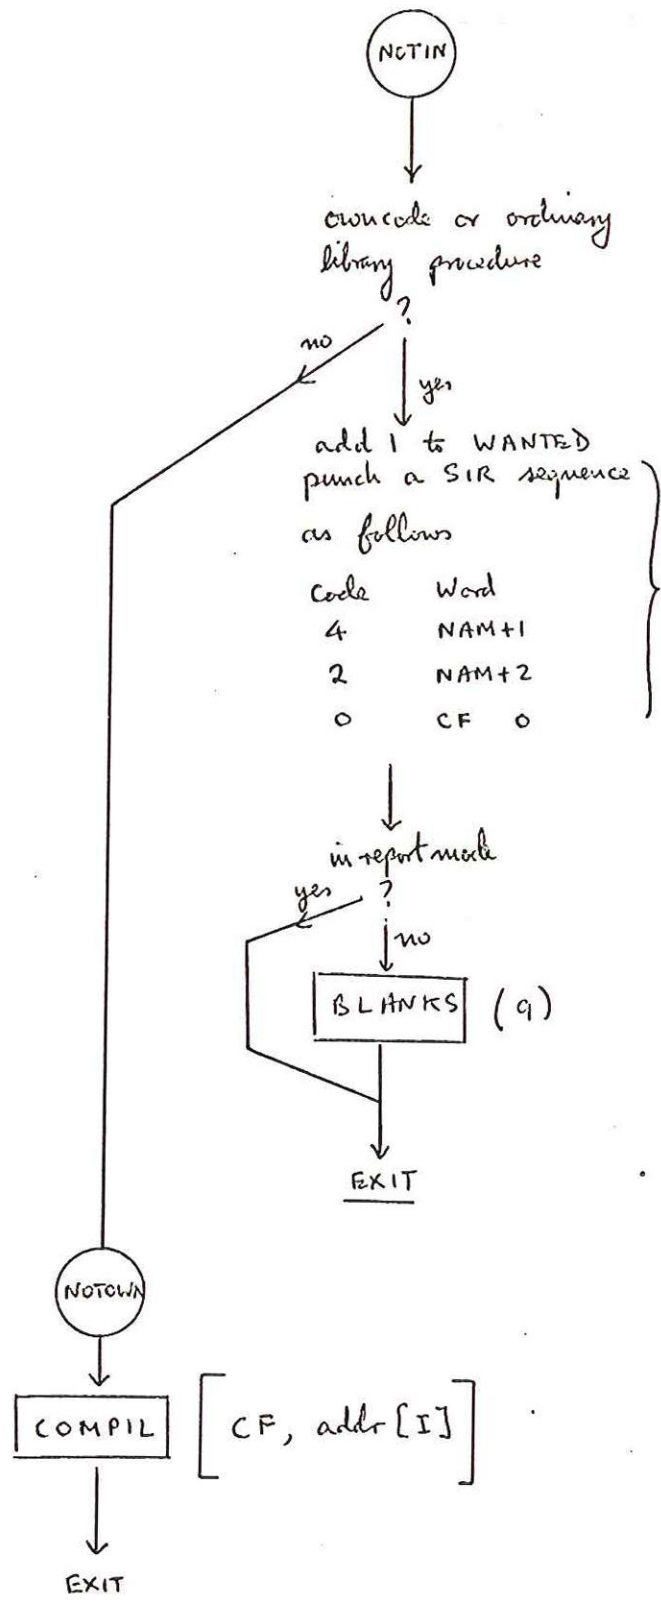 NOTIN
owncode or ordinary
library procedure
?
no
yes
add 1 to WANTED
punch a SIR sequence
as follows
Code Word
4 NAM+1
2 NAM+2
0 CF 0
in report mode
?
yes
no
BLANKS (9)
EXIT
NOTOWN
COMPIL [CF, addr [I]]
EXIT